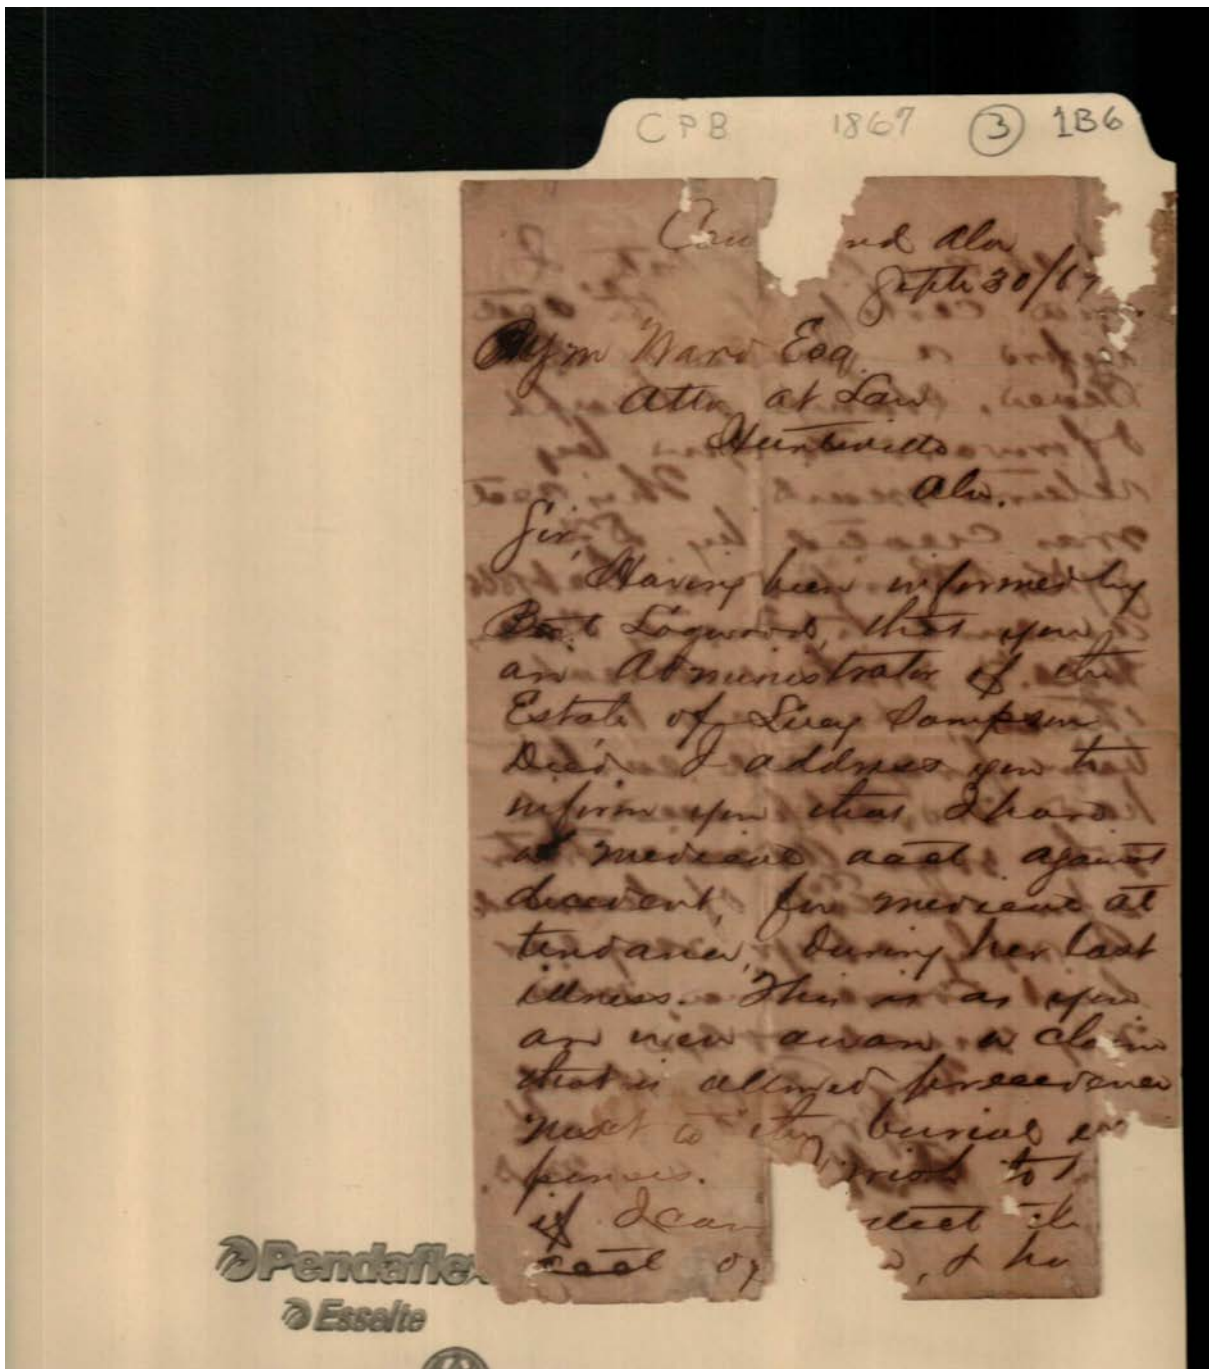 CPB 1867 3 1B6
nd Ala
Sept 30/67
Ward Esq.
Atty at Law
Huntsville
Ala.
Sir,
Having been informed by
Logwood, that you
are Administrator of the
Estate of Sampson
Dec'd, I address you to
inform you that I have
a medical acct against
decedent, for medical at
tendance, during her last
illness. This is as you
are well aware a claim
that is allowed precedence
next to the burial ex
penses. I wish to
if I can the
acct
Pendaflex
Esselte